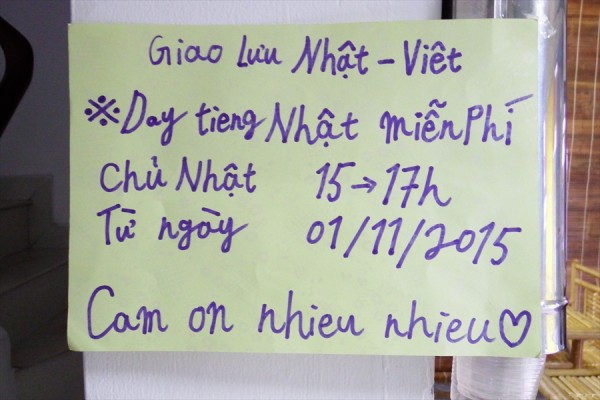 Giao Lưu Nhật - Viêt
※Day tiêng Nhật miễn Phí
Chủ Nhật 15→17h
Từ ngày 01/11/2015
Cam on nhieu nhieu♡